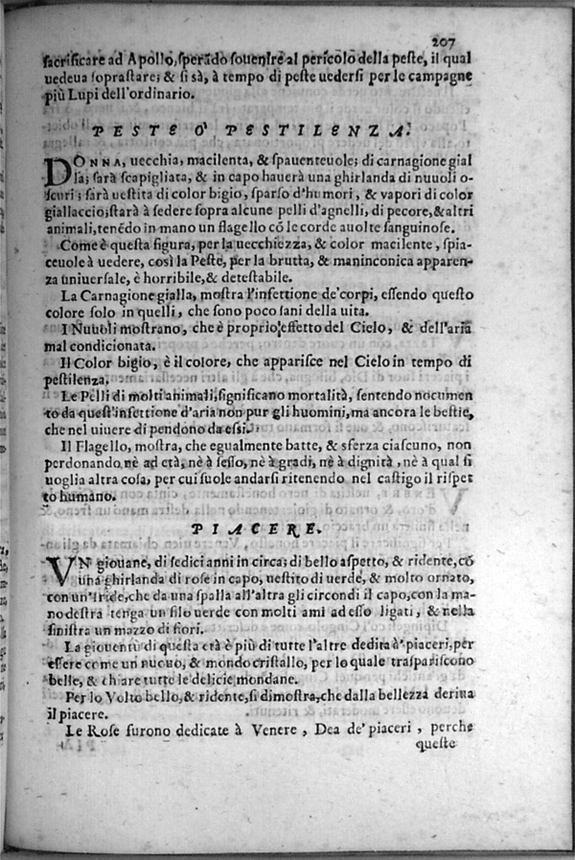 207
sacrificare ad Apollo, sperãdo souenire al pericolo della peste, il qual
uedeua soprastare; & si sà, à tempo di peste uedersi per le campagne
più Lupi dell'ordinario.
PESTE Ò PESTILENZA.
DONNA, uecchia, macilenta, & spauenteuole; di carnagione gial
la; sarà scapigliata, & in capo hauerà una ghirlanda di nuuoli o-
scuri; sarà uestita di color bigio, sparso d'humori, & vapori di color
giallaccio; starà à sedere sopra alcune pelli d'agnelli, di pecore, & altri
animali, tenẽdo in mano un flagello cõ le corde auolte sanguinose.
Come è questa figura, per la uecchiezza, & color macilente, spia-
ceuole à uedere, così la Peste, per la brutta, & maninconica apparen-
za uniuersale, è horribile, & detestabile.
La Carnagione gialla, mostra l'infettione de' corpi, essendo questo
colore solo in quelli, che sono poco sani della uita.
I Nuuoli mostrano, che è proprio effetto del Cielo, & dell'aria
mal condicionata.
Il Color bigio, è il colore, che apparisce nel Cielo in tempo di
pestilenza.
Le Pelli di molti animali, significano mortalità, sentendo nocumen
to da quest'infettione d'aria non pur gli huomini, ma ancora le bestie,
che nel uiuere di pendono da essi.
Il Flagello, mostra, che egualmente batte, & sferza ciascuno, non
perdonando nè ad età, nè à sesso, nè à gradi, nè à dignità, nè à qual si
uoglia altra cosa, per cui suole andarsi ritenendo nel castigo il rispet
to humano.
PIACERE.
VN giouane, di sedici anni in circa; di bello aspetto, & ridente, cõ
una ghirlanda di rose in capo, uestito di uerde, & molto ornato,
con un'Iride, che da una spalla all'altra gli circondi il capo, con la ma-
no destra tenga un filo uerde con molti ami ad esso ligati, & nella
sinistra un mazzo di fiori.
La giouentù di questa età è più di tutte l'altre dedita à' piaceri, per
essere come un nuouo, & mondo cristallo, per lo quale traspariscono
belle, & chiare tutte le delicie mondane.
Per lo Volto bello, & ridente, si dimostra, che dalla bellezza deriua
il piacere.
Le Rose furono dedicate à Venere, Dea de' piaceri, perche
queste